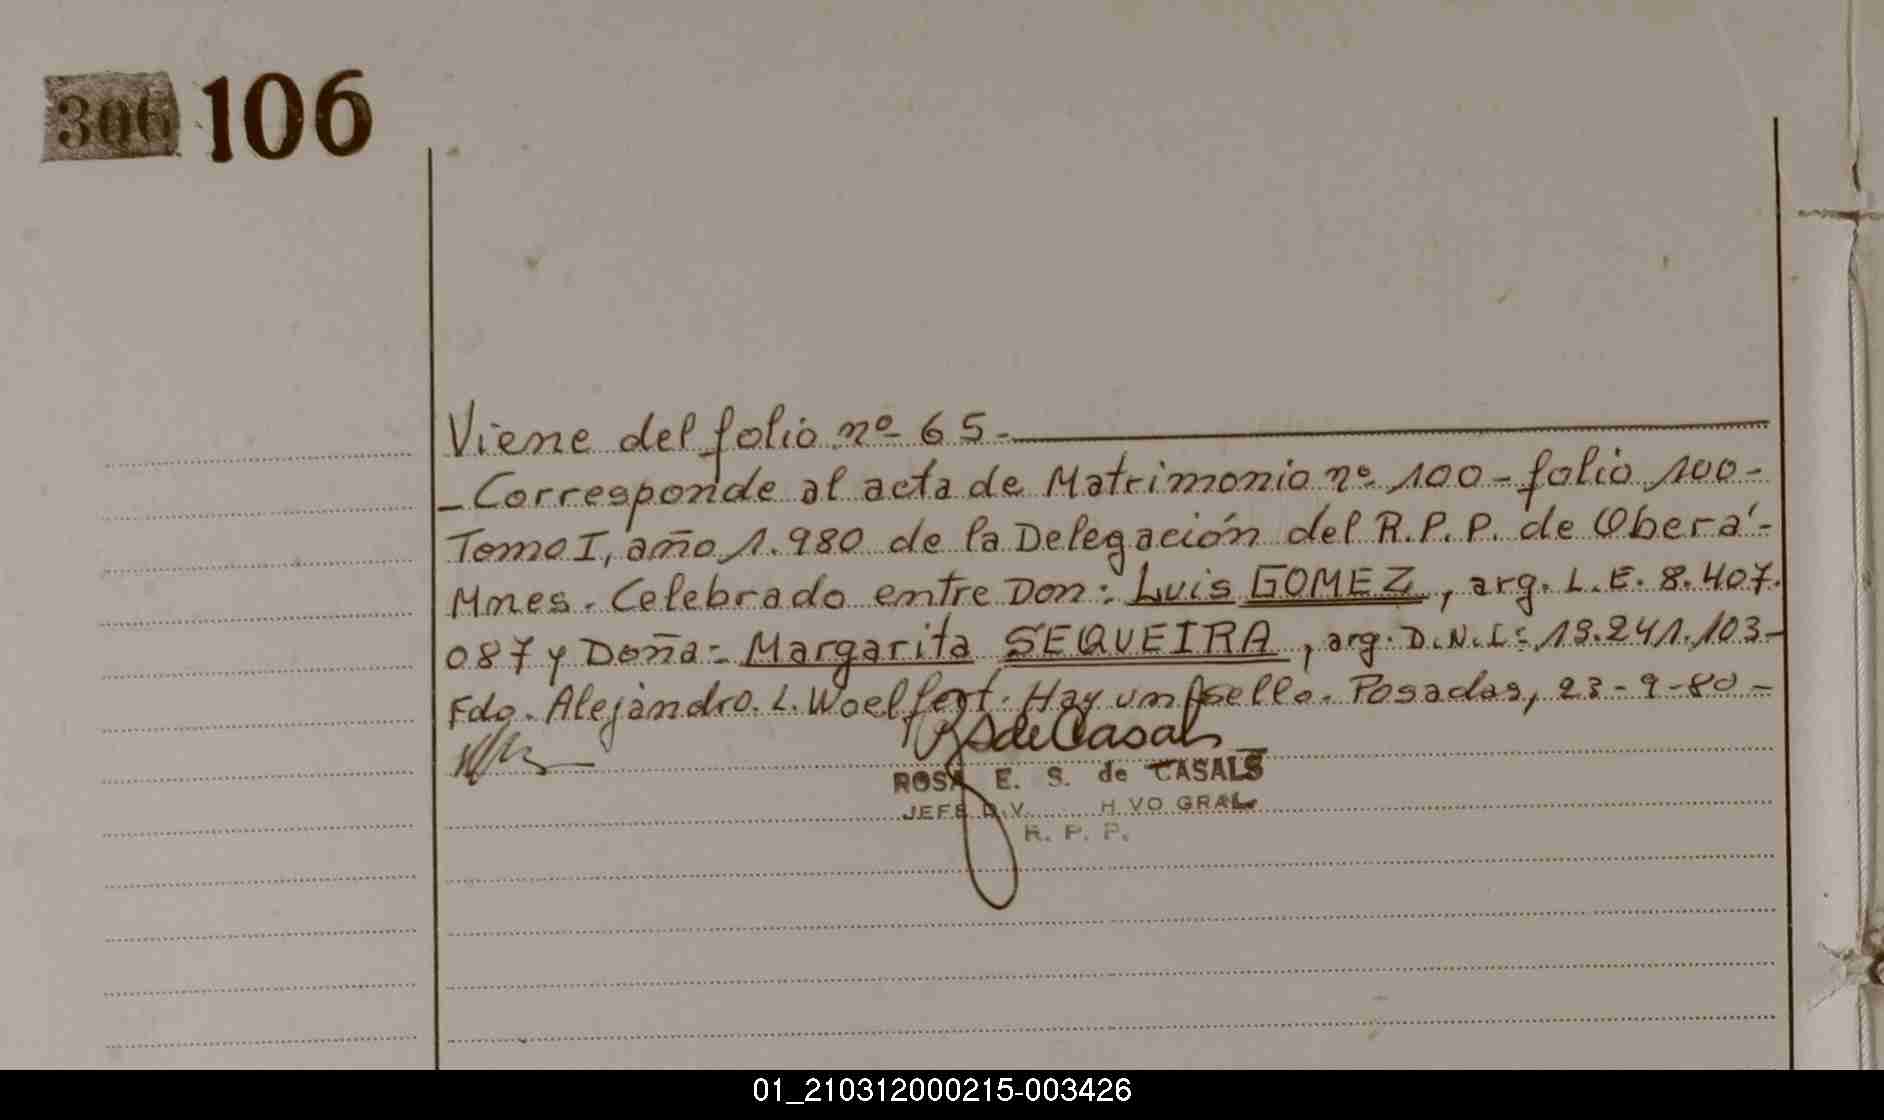 306 106
Viene del folio nº 65.-
-Corresponde al acta de Matrimonio nº 100 - folio 100-
Tomo I, año 1.980 de la Delegación del R.P.P. de Oberá-
Mnes. Celebrado entre Don: Luis GOMEZ, arg. L.E. 8.407.
087 y Doña: Margarita SEQUEIRA, arg. D.N.I: 13.241.103-
Fdo. Alejandro. L. Woelfert. Hay un sello. Posadas, 23-9-80-
RSdeCasals
ROSA E. S. de CASALS
JEFE D.V. H.VO GRAL
R. P. P.
01_210312000215-003426